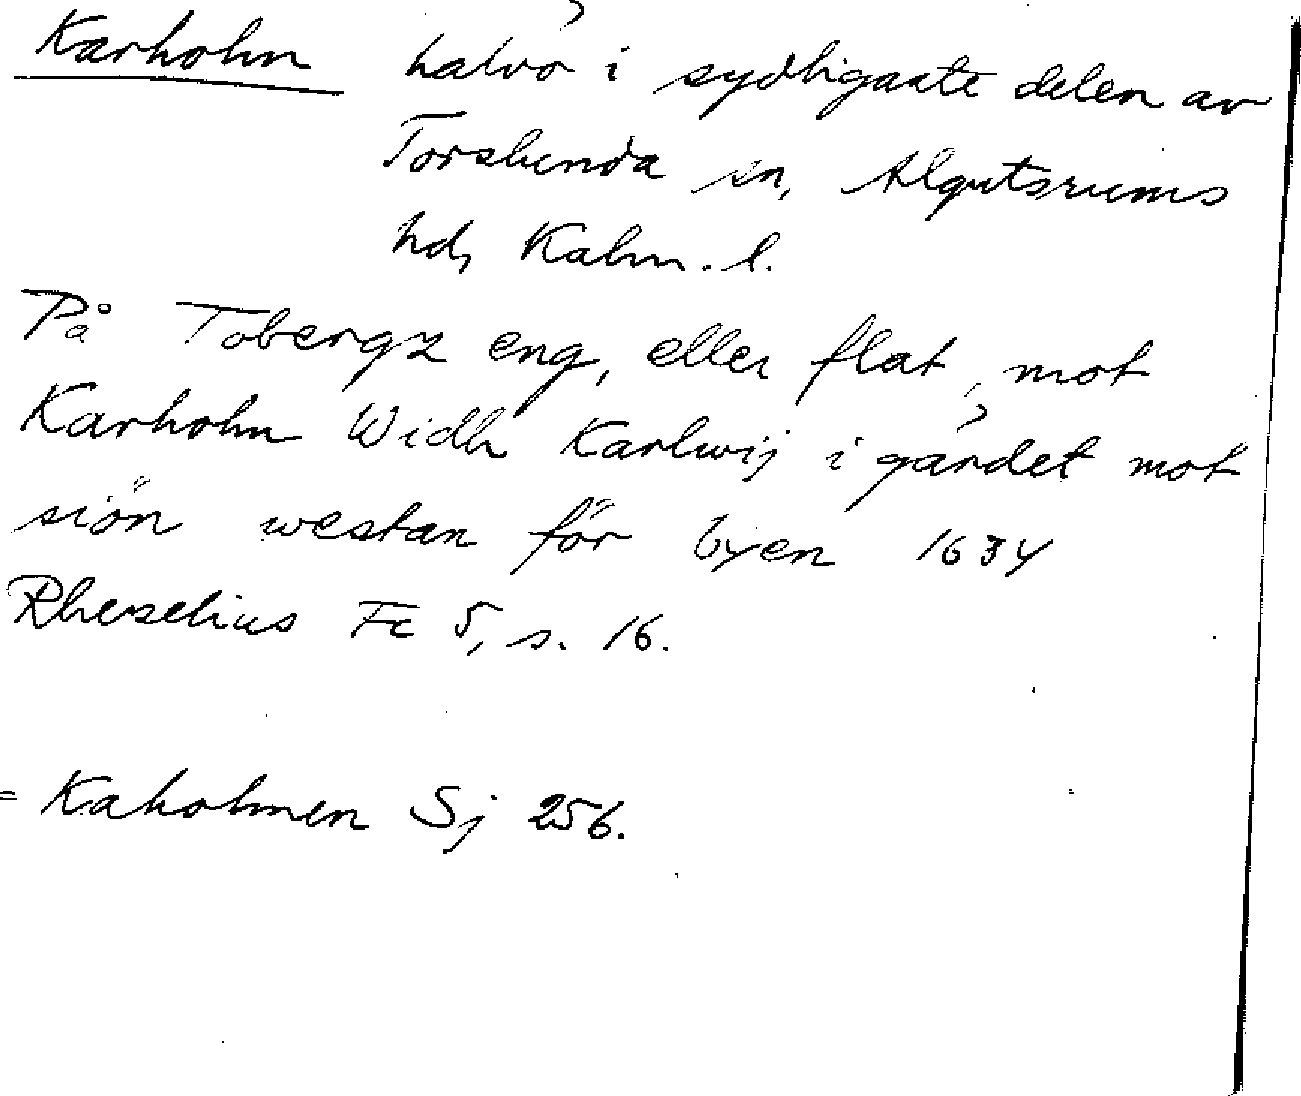 Karholm halvö i sydligaste delen av
Torslunda sn, Algutsrums
hd, Kalm. l.
På Tobergz eng, eller flat, mot
Karholm Widh Karlwij i gärdet mot
siön westan för byen 1634
Rhezelius Fc 5, s. 16.
= Kaholmen Sj 256.